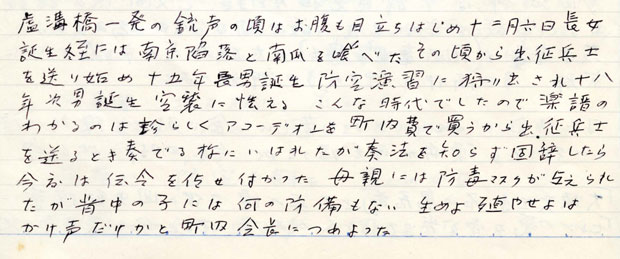 盧溝橋一発の銃声の頃はお腹も目立ちはじめ十二月六日長女
誕生 には南京陥落と南瓜を喰べた その頃から出征兵士
を送り始め 十五年長男誕生 防空演習に狩り出され十八
年次男誕生 空襲に怯える こんな時代でしたので楽譜の
わかるのは珍らしく アコーデオンを町内費で買うから出征兵士
を送るとき奏でる様にいはれたが奏法を知らず固辞したら
今度は伝令を仰せ付かった 母親には防毒マスクが与えられ
たが背中の子には何の防備もない 生めよ殖やせよは
かけ声だけかと町内会長につめよった